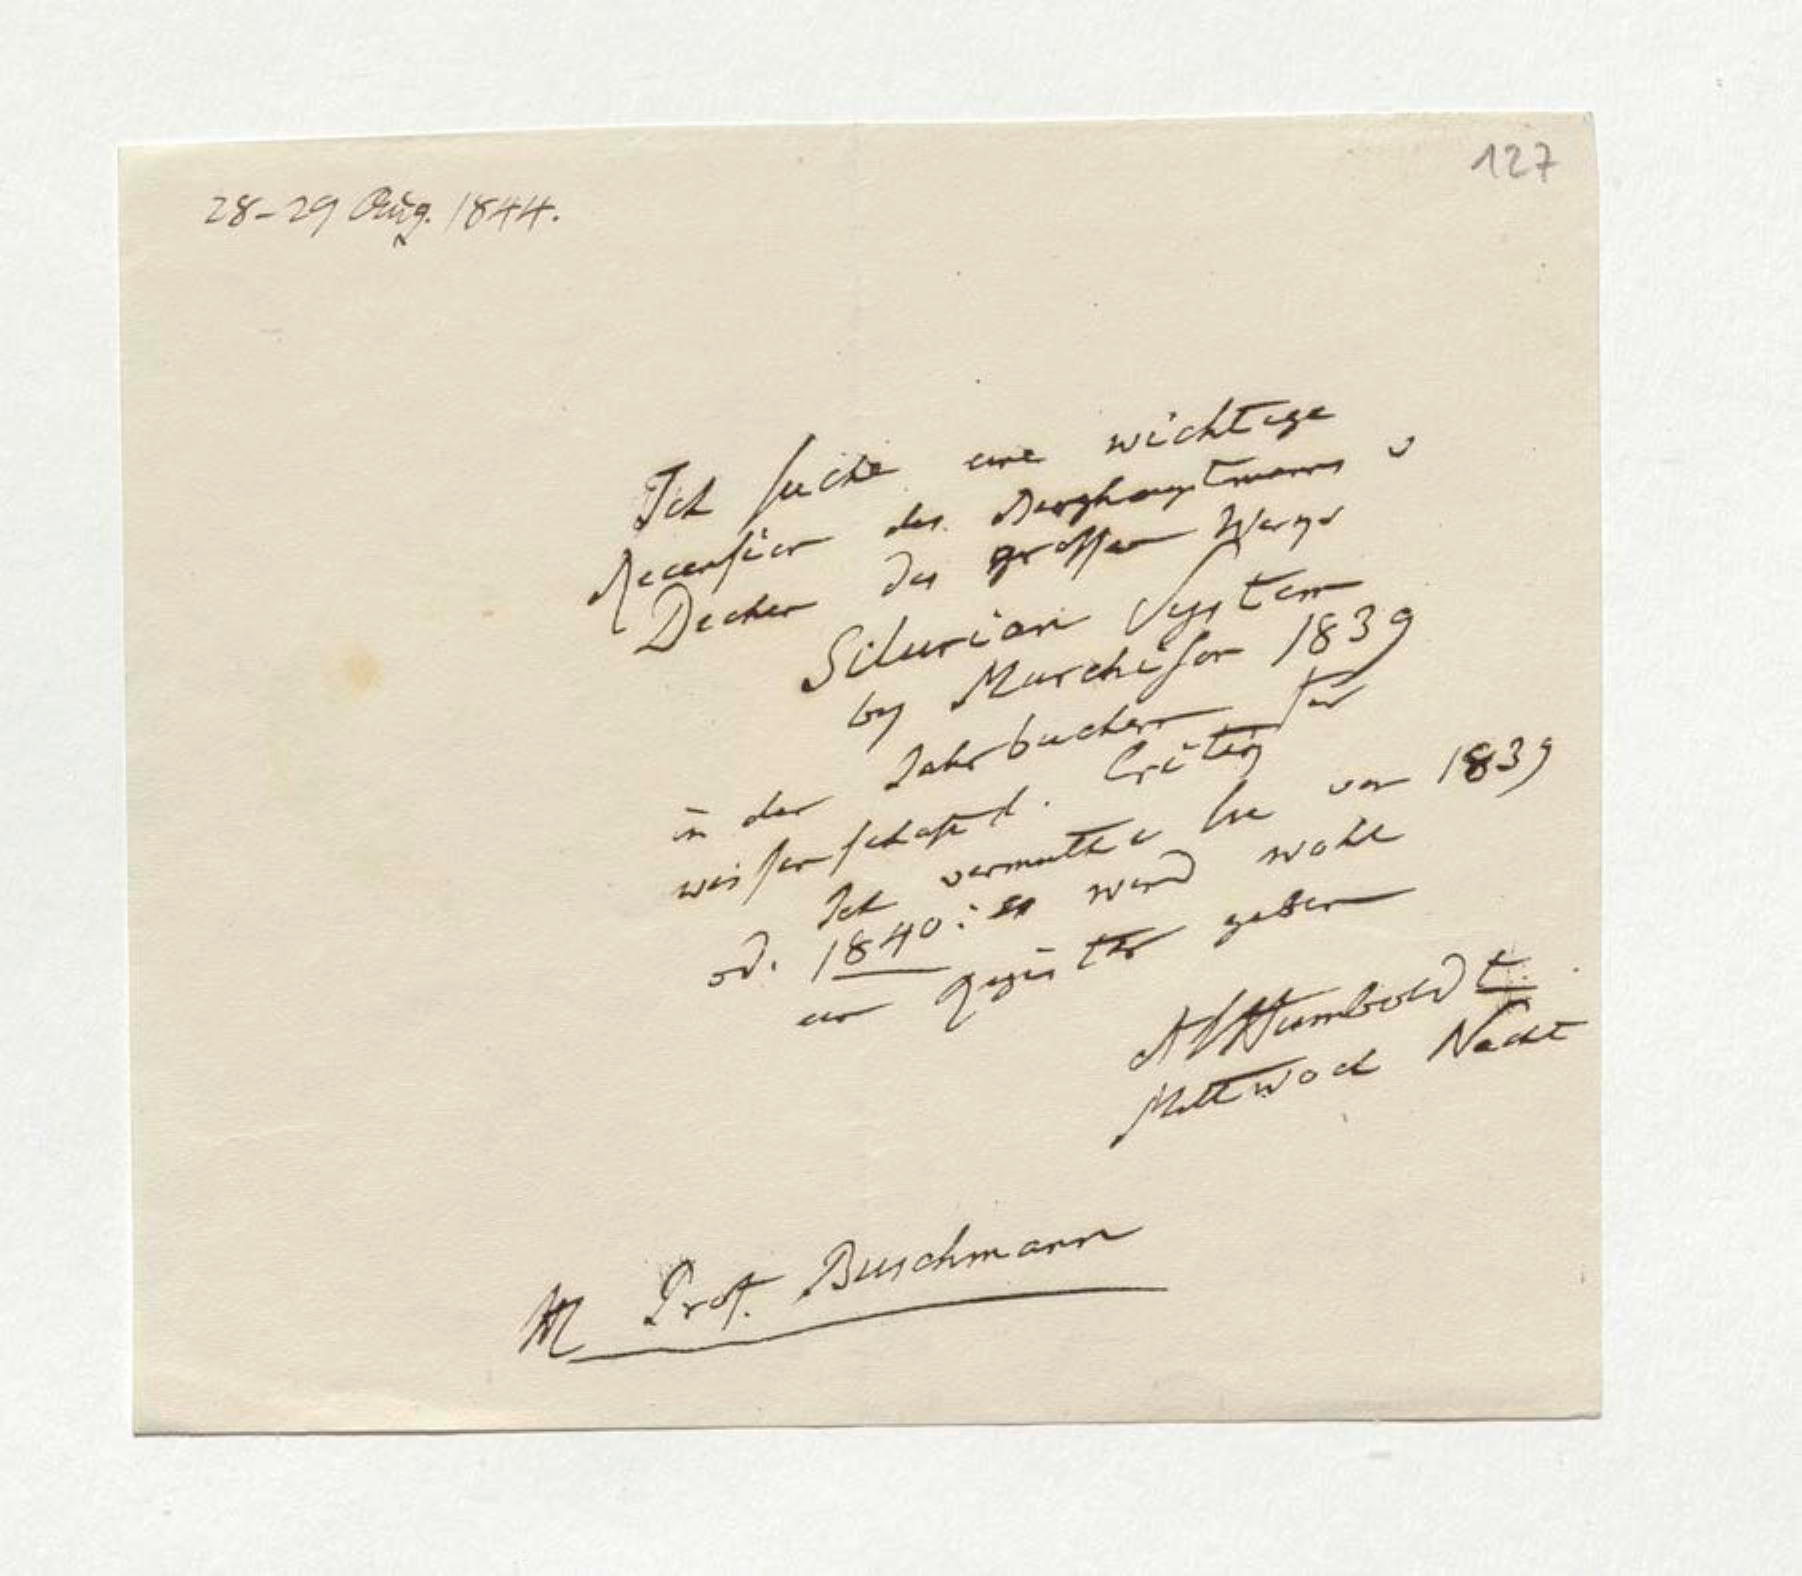 127
28-29 Aug. 1844.
Ich suche eine wichtige
Recension des Berghauptmanns v
Dechen des grossen Werks
Silurian System
by Murchison 1839
in den Jahrbuchern für
wissenschaftl. Critik
Ich vermuthe sie von 1839
od. 1840: es wird wohl
ein Register geben
AvHumboldt
Mittwoch Nacht
H Prof. Buschmann